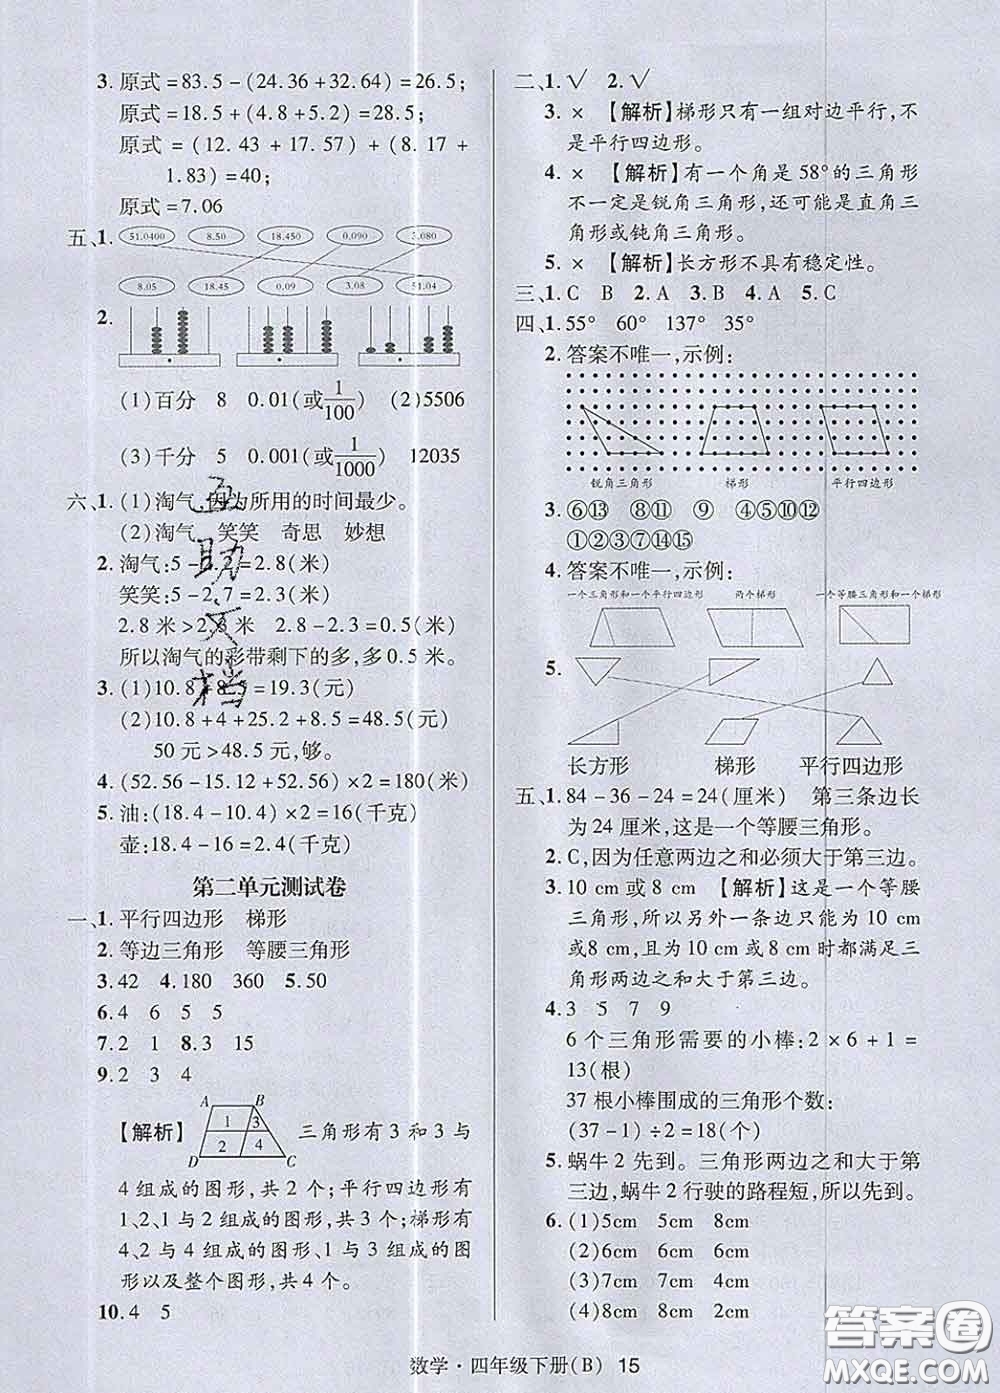 3. 原式=83.5-(24.36+32.64)=26.5;
原式=18.5+(4.8+5.2)=28.5;
原式=(12.43+17.57)+(8.17+
1.83)=40;
原式=7.06
五、1. 51.0400 8.50 18.450 0.090 3.080
8.05 18.45 0.09 3.08 51.04
2.
(1)百分 8 0.01(或1/100) (2)5506
(3)千分 5 0.001(或1/1000) 12035
六、1. (1)淘气,因为所用的时间最少。
(2)淘气 笑笑 奇思 妙想
2. 淘气:5-2.2=2.8(米)
笑笑:5-2.7=2.3(米)
2.8米>2.3米 2.8-2.3=0.5(米)
所以淘气的彩带剩下的多,多0.5米。
3. (1)10.8+8.5=19.3(元)
(2)10.8+4+25.2+8.5=48.5(元)
50元>48.5元,够。
4. (52.56-15.12+52.56)×2=180(米)
5. 油:(18.4-10.4)×2=16(千克)
壶:18.4-16=2.4(千克)
第二单元测试卷
一、1. 平行四边形 梯形
2. 等边三角形 等腰三角形
3. 42 4. 180 360 5. 50
6. 4 6 5 5
7. 2 1 8. 3 15
9. 2 3 4
A B
1 3
【解析】 三角形有3和3与
2 4
D C
4组成的图形,共2个;平行四边形有
1、2、1与2组成的图形,共3个;梯形有
4、2与4组成的图形、1与3组成的图
形以及整个图形,共4个。
10. 4 5
二、1. √ 2. √
3. × 【解析】梯形只有一组对边平行,不
是平行四边形。
4. × 【解析】有一个角是58°的三角形
不一定是锐角三角形,还可能是直角三
角形或钝角三角形。
5. × 【解析】长方形不具有稳定性。
三、1. C B 2. A 3. B 4. A 5. C
四、1. 55° 60° 137° 35°
2. 答案不唯一,示例:
锐角三角形 梯形 平行四边形
3. ⑥⑬ ⑧⑪ ⑨ ④⑤⑩⑫
①②③⑦⑭⑮
4. 答案不唯一,示例:
一个三角形和一个平行四边形 两个梯形 一个等腰三角形和一个梯形
5.
长方形 梯形 平行四边形
五、1. 84-36-24=24(厘米) 第三条边长
为24厘米,这是一个等腰三角形。
2. C,因为任意两边之和必须大于第三边。
3. 10 cm或8 cm 【解析】这是一个等腰
三角形,所以另外一条边只能为10 cm
或8 cm,且为10 cm或8 cm时都满足三
角形两边之和大于第三边。
4. 3 5 7 9
6个三角形需要的小棒:2×6+1=
13(根)
37根小棒围成的三角形个数:
(37-1)÷2=18(个)
5. 蜗牛2先到。三角形两边之和大于第
三边,蜗牛2行驶的路程短,所以先到。
6. (1)5cm 5cm 8cm
(2)6cm 6cm 6cm
(3)7cm 7cm 4cm
(4)8cm 8cm 2cm
数学·四年级下册(B) 15
互助文档
答案圈
MXQE.COM